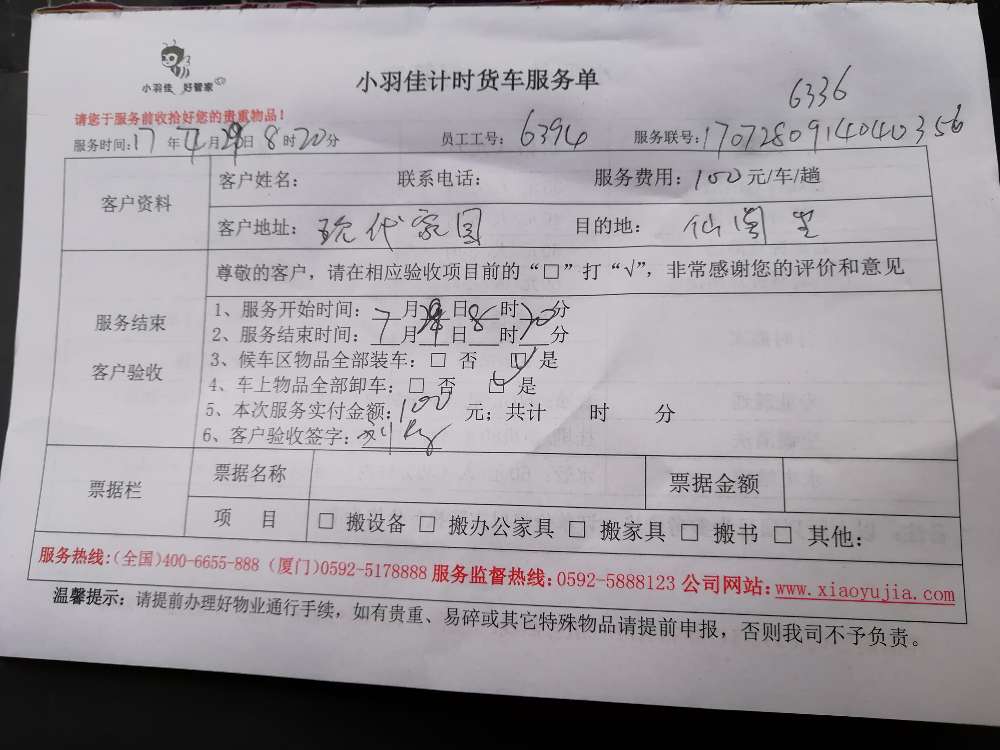 小羽佳 好管家
小羽佳计时货车服务单
6336
请您于服务前收拾好您的贵重物品!
服务时间:17年7月29日8时20分 员工工号:6394 服务联号:1707280914040356
客户资料
客户姓名: 联系电话: 服务费用:100元/车/趟
客户地址:现代家园 目的地:仙阁里
服务结束
客户验收
尊敬的客户,请在相应验收项目前的“□”打“√”,非常感谢您的评价和意见
1、服务开始时间:7月29日8时20分
2、服务结束时间: 月 日 时 分
3、候车区物品全部装车:□ 否 □ 是
4、车上物品全部卸车:□ 否 □ 是
5、本次服务实付金额:100元;共计 时 分
6、客户验收签字:刘
票据栏
票据名称 票据金额
项 目 □ 搬设备 □ 搬办公家具 □ 搬家具 □ 搬书 □ 其他:
服务热线:(全国)400-6655-888 (厦门)0592-5178888 服务监督热线:0592-5888123 公司网站:www.xiaoyujia.com
温馨提示:请提前办理好物业通行手续,如有贵重、易碎或其它特殊物品请提前申报,否则我司不予负责。